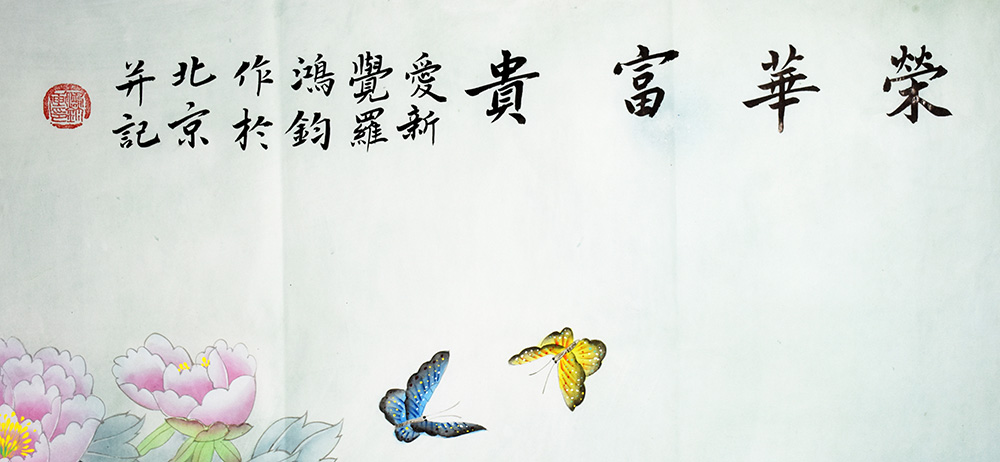 榮華富貴
愛新
覺羅
鴻鈞
作於
北京
并記